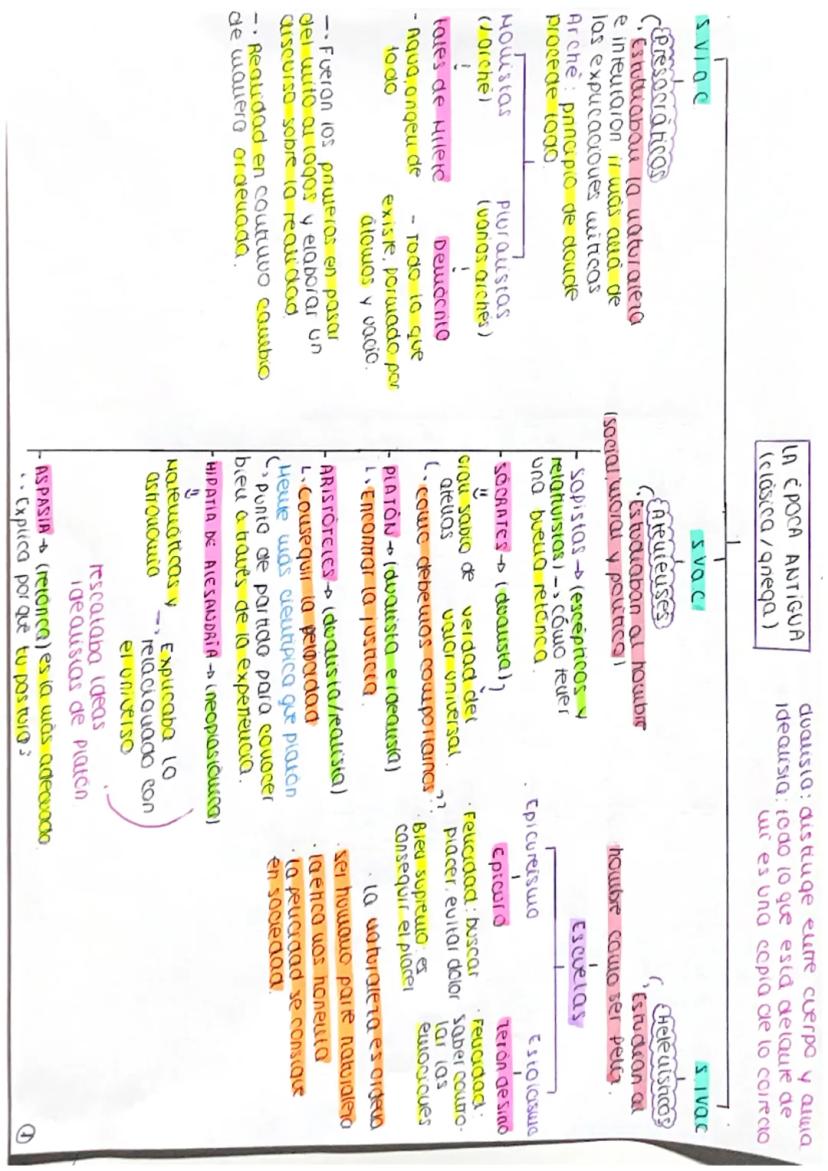 LA ÉPOCA ANTIGUA
(clásica / griega)
dualista: distingue entre cuerpo y alma
idealista: todo lo que está delante de
mí es una copia de lo correcto
S.VI a C
Presocráticos
↳ Estudiaban la naturaleza
e intentaron ir más allá de
las explicaciones míticas
Arché: principio de donde
procede todo
Monistas
(1 arché)
Tales de Mileto
- Agua, origen de
todo
Pluralistas
(varios archés)
Demócrito
- Todo lo que
existe, formado por
átomos y vacío.
→ Fueron los primeros en pasar
del mito al logos y elaborar un
discurso sobre la realidad
→ Realidad en continuo cambio
de manera ordenada.
S V a C
Atenienses
↳ Estudiaban al hombre
(social, moral y política)
- Sofistas → (escépticos y
relativistas) → cómo tener
una buena retórica
- SÓCRATES → (dualista)
Gran sabio de
atenas
verdad del
valor universal
↳ como debemos comportarnos??
- PLATÓN → (dualista e idealista)
↳ Encontrar la justicia
- ARISTÓTELES → (dualista/realista)
↳ Conseguir la felicidad
Mente más científica que platón
↳ punto de partida para conocer
bien a través de la experiencia.
- HIPATIA DE ALEJANDRÍA → (neoplatónica)
Matemáticas y
astronomía
→ Explicaba lo
relacionado con
el universo
rescataba ideas
idealistas de platón
- ASPASIA → (retórica) es la más adecuada
·· Explica por qué tu postura?
S.IV a C
Helenísticos
↳ Estudian al
hombre como ser feliz.
Escuelas
· Epicureismo
Epicuro
· Felicidad: buscar
placer, evitar dolor
· Bien supremo: es
conseguir el placer
Estoicismo
Zenón de Sitio
· Felicidad:
saber contro-
lar las
emociones
· la naturaleza es orden
· ser humano parte naturaleza
· la ética nos
· la felicidad se consigue
en sociedad.
1